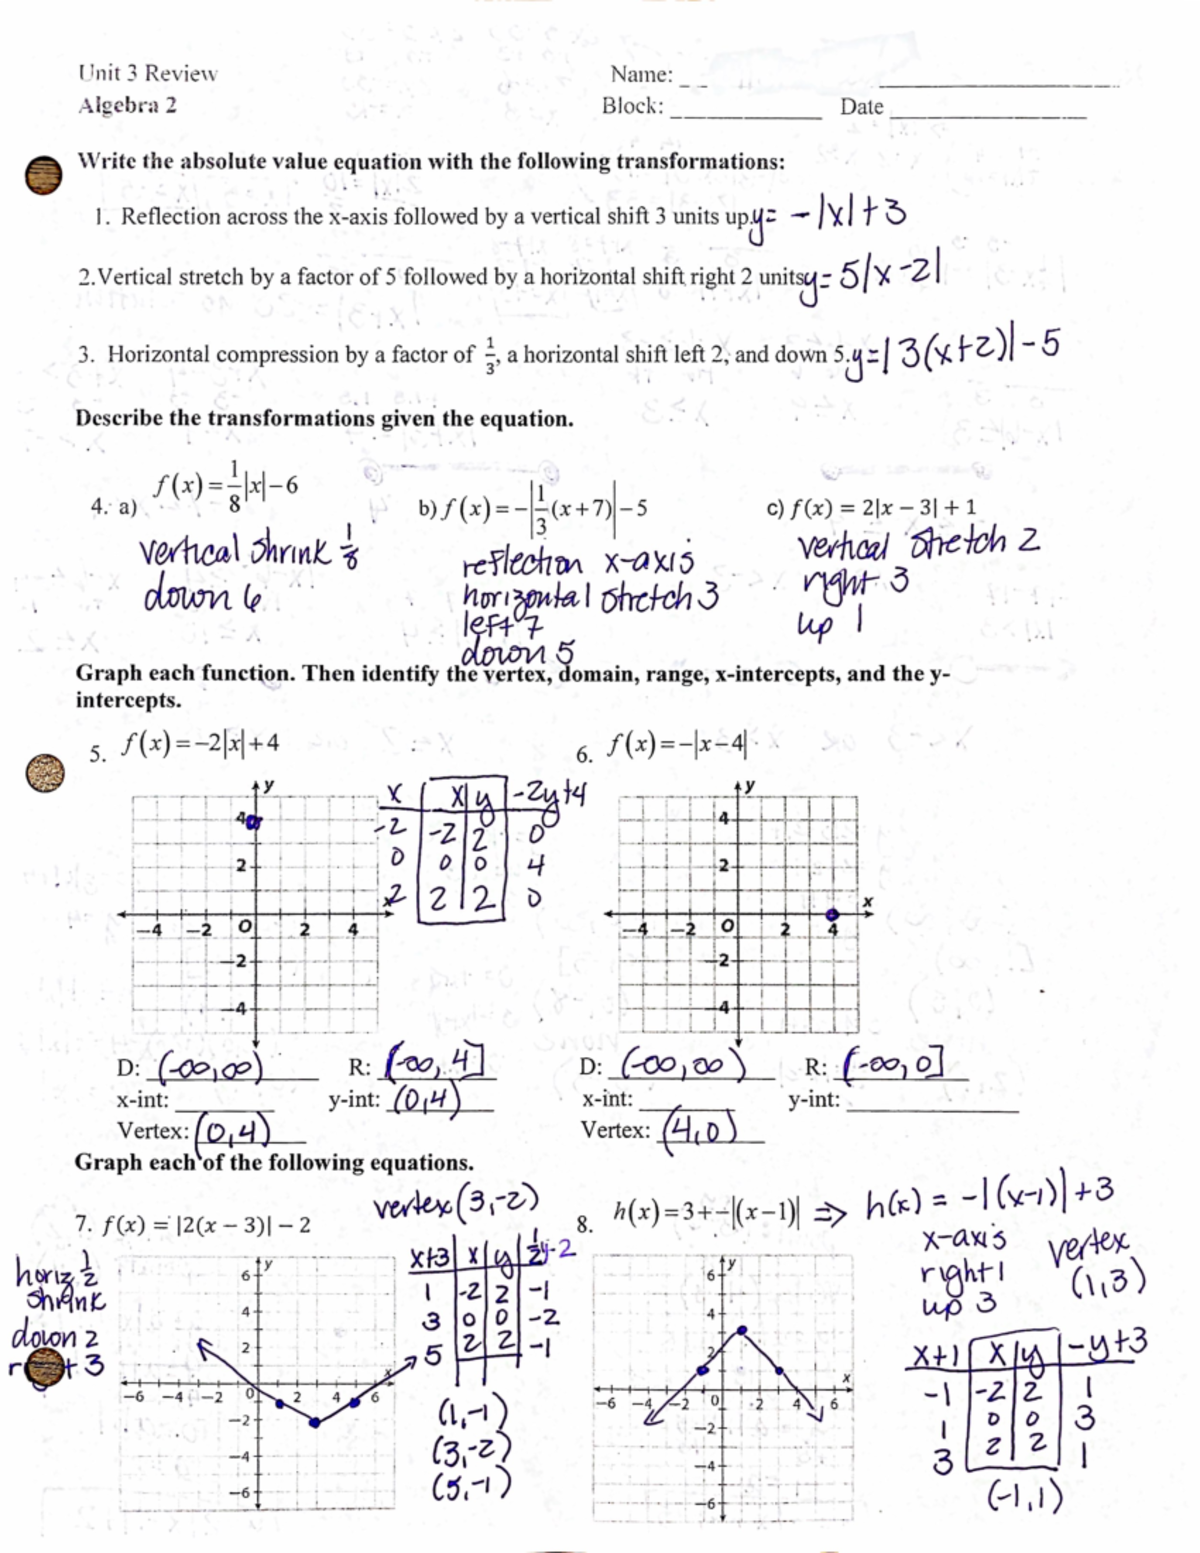 Unit 3 Review
Name: _ _ ____________________
Algebra 2
Block: ______________ Date __________________
Write the absolute value equation with the following transformations:
1. Reflection across the x-axis followed by a vertical shift 3 units up. y= -|x|+3
2.Vertical stretch by a factor of 5 followed by a horizontal shift right 2 units y= 5|x-2|
3. Horizontal compression by a factor of 1/3, a horizontal shift left 2, and down 5. y=|3(x+2)|-5
Describe the transformations given the equation.
4. a) f(x)=1/8|x|-6
vertical shrink 1/8
down 6
b) f(x)=-|1/3(x+7)|-5
reflection x-axis
horizontal stretch 3
left 7
down 5
c) f(x) = 2|x – 3| + 1
vertical stretch 2
right 3
up 1
Graph each function. Then identify the vertex, domain, range, x-intercepts, and the y-
intercepts.
5. f(x)=-2|x|+4
x | x | y | -2y+4
-2 | -2 | 2 | 0
0 | 0 | 0 | 4
2 | 2 | 2 | 0
y
4
2
x
-4 -2 O 2 4
-2
-4
D: (-∞,∞) R: (-∞, 4]
x-int: ________ y-int: (0,4)
Vertex: (0,4)
6. f(x)=-|x-4|
y
4
2
x
-4 -2 O 2 4
-2
-4
D: (-∞,∞) R: (-∞,0]
x-int: ________ y-int: ______________
Vertex: (4,0)
Graph each of the following equations.
7. f(x) = |2(x – 3)| – 2
vertex (3,-2)
horiz 1/2
shrink
down 2
3
x+3 | x | y | 1/2y-2
1 | -2 | 2 | -1
3 | 0 | 0 | -2
5 | 2 | 2 | -1
(1,-1)
(3,-2)
(5,-1)
y
6
4
2
x
-6 -4 -2 0 2 4 6
-2
-4
-6
8. h(x)=3+-|(x-1)| ⇒ h(x) = -|(x-1)|+3
x-axis
right 1
up 3
vertex
(1,3)
x+1 | x | y | -y+3
-1 | -2 | 2 | 1
1 | 0 | 0 | 3
3 | 2 | 2 | 1
(-1,1)
y
6
4
2
x
-6 -4 -2 0 2 4 6
-2
-4
-6